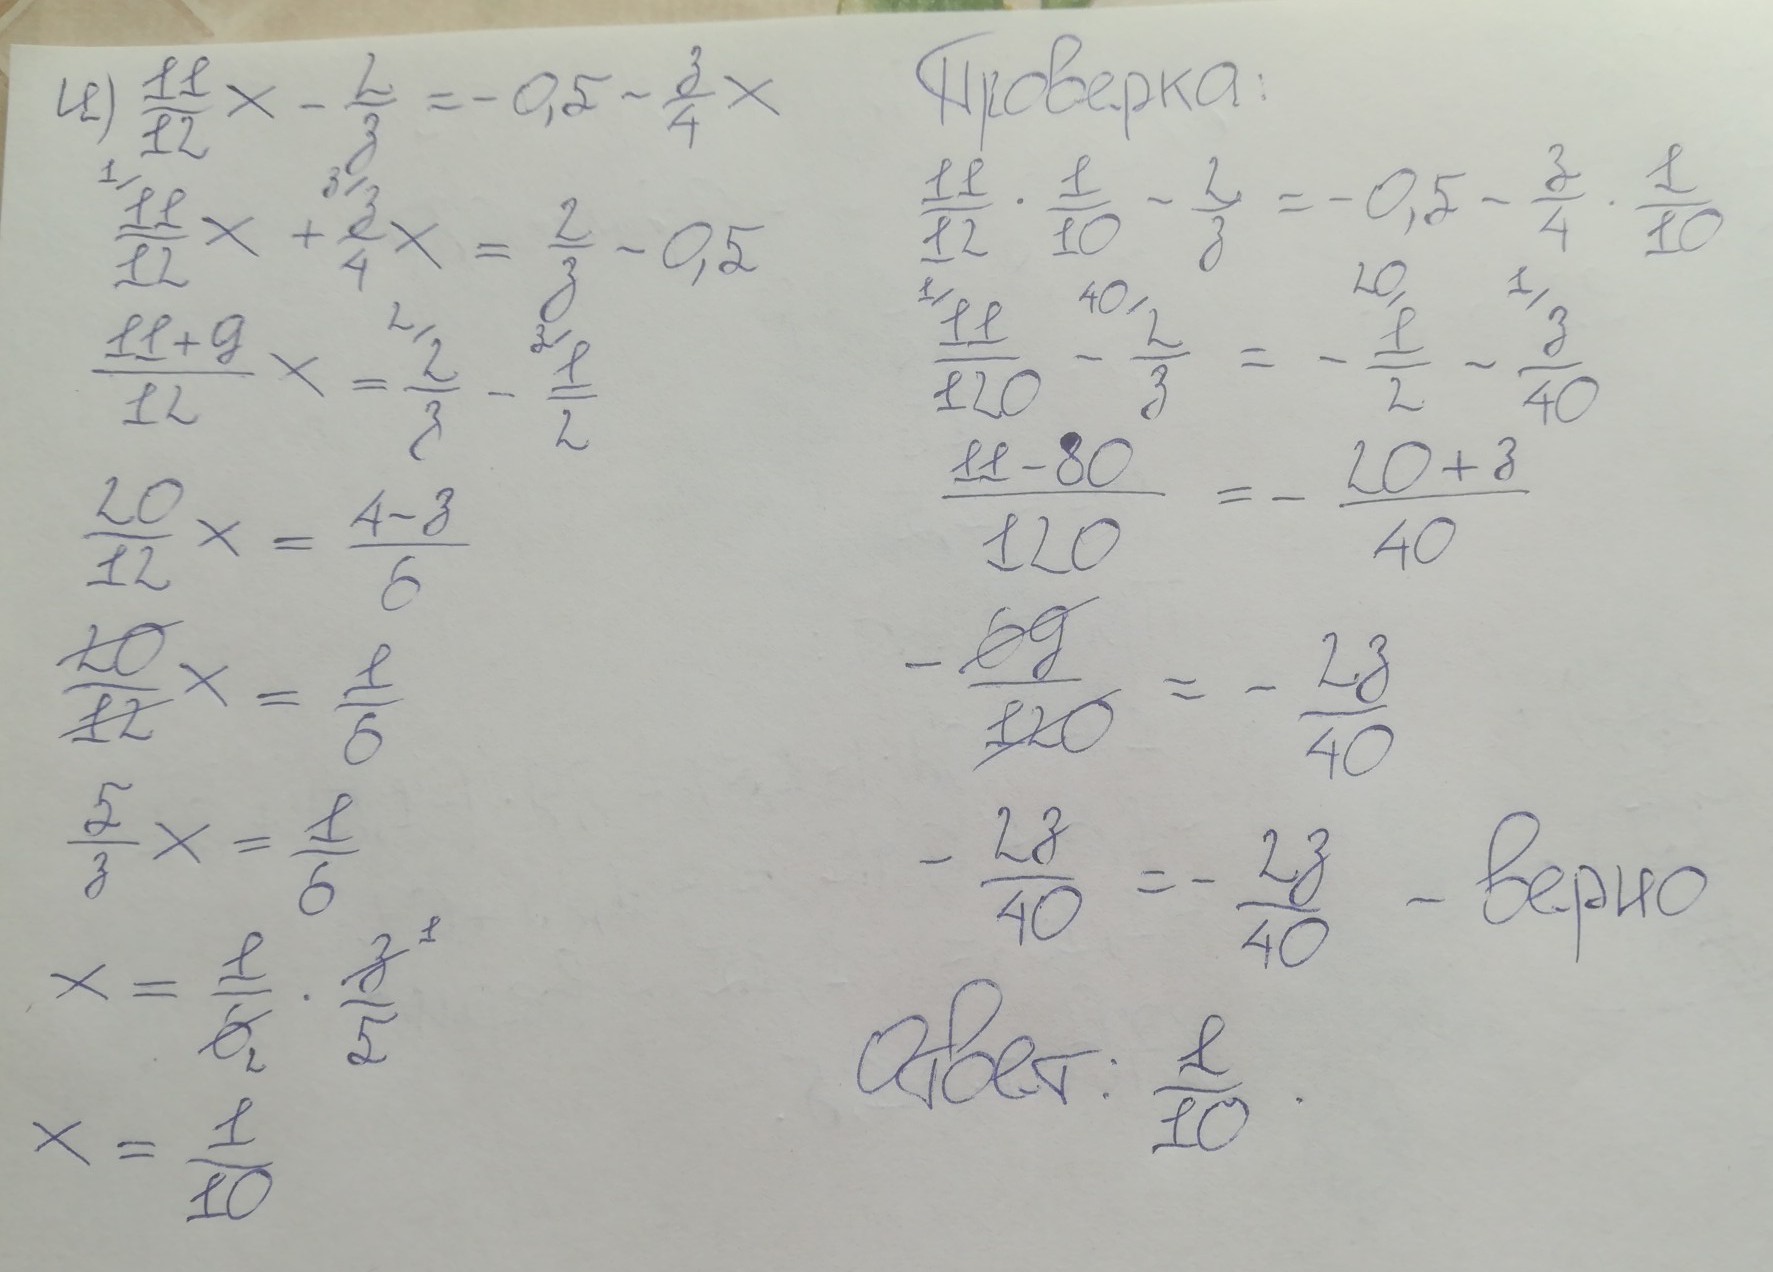 и) 11/12 x - 2/3 = -0,5 - 3/4 x
1/ 11/12 x + 3/ 3/4 x = 2/3 - 0,5
11+9/12 x = 2/ 2/3 - 3/ 1/2
20/12 x = 4-3/6
20/12 x = 1/6
5/3 x = 1/6
x = 1/6 2 · 3/5 1
x = 1/10
Проверка:
11/12 · 1/10 - 2/3 = -0,5 - 3/4 · 1/10
1/ 11/120 - 40/ 2/3 = - 20/ 1/2 - 1/ 3/40
11-80/120 = - 20+3/40
- 69/120 = - 23/40
- 23/40 = - 23/40 - верно
Ответ: 1/10.